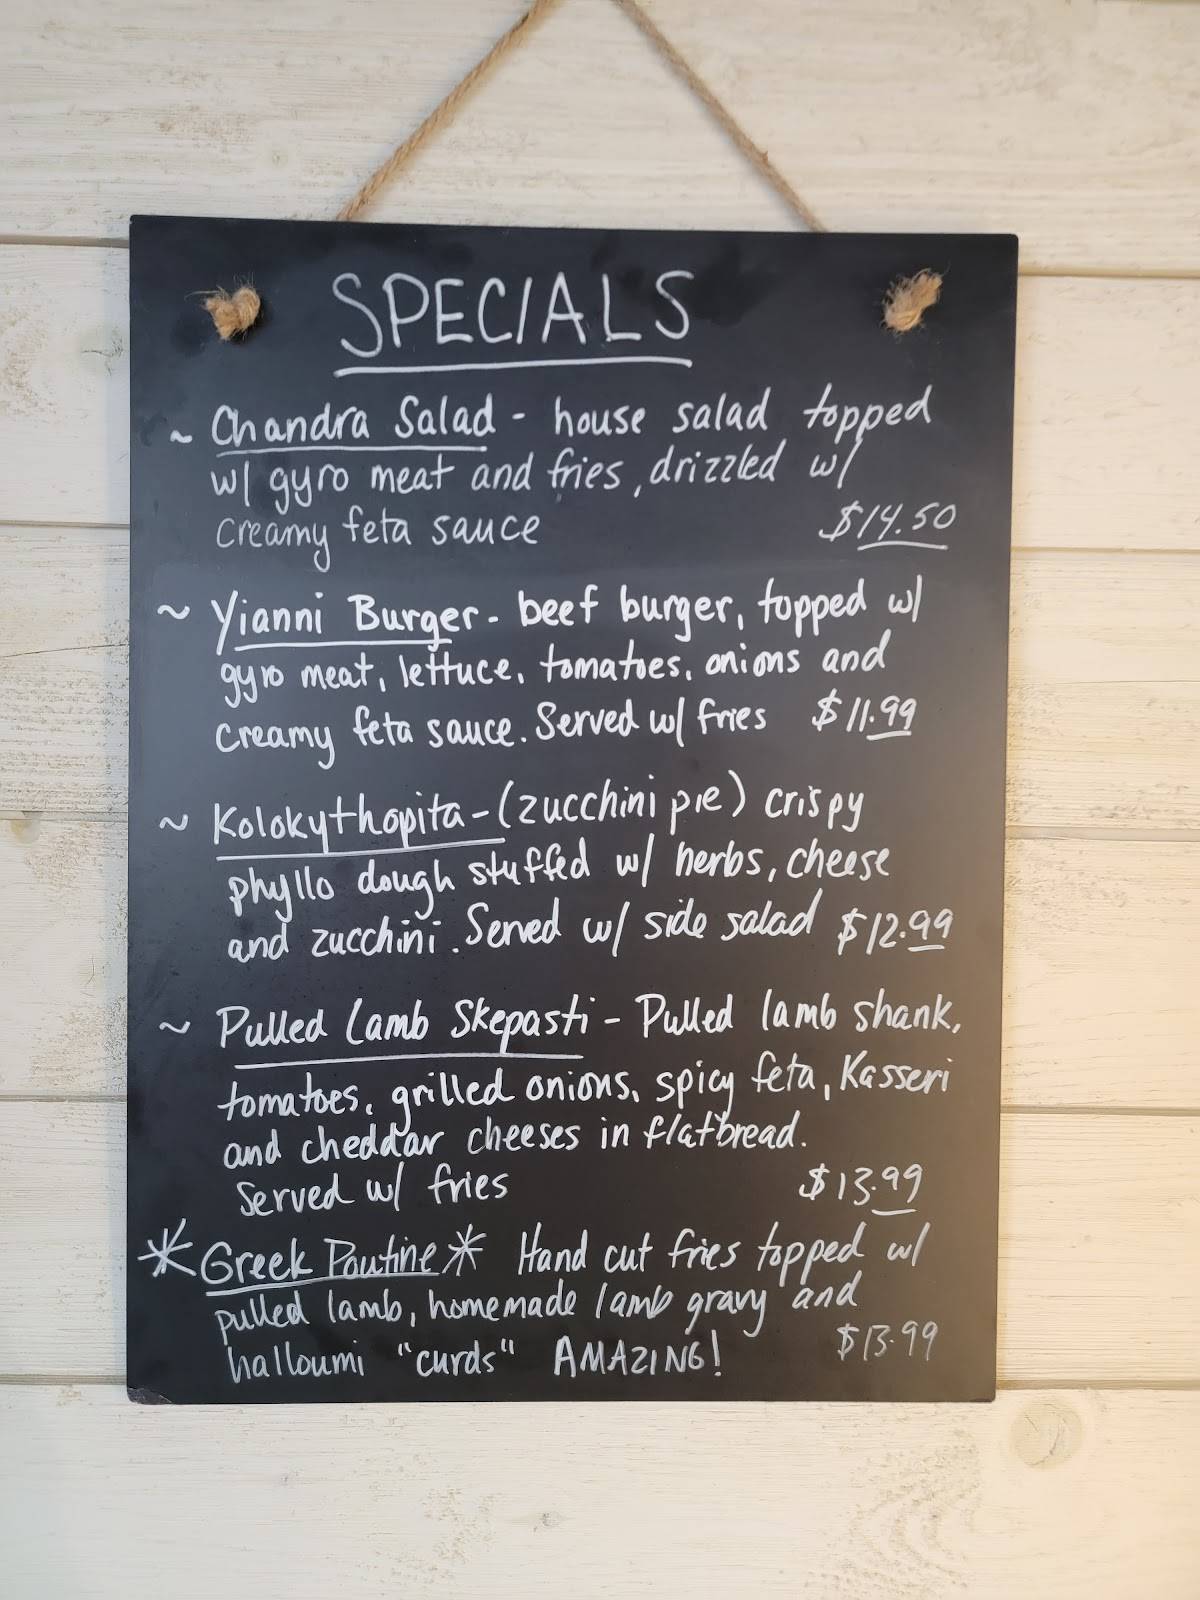 SPECIALS
~ Chandra Salad - house salad topped
w/ gyro meat and fries, drizzled w/
creamy feta sauce $14.50
~ Yianni Burger - beef burger, topped w/
gyro meat, lettuce, tomatoes, onions and
creamy feta sauce. Served w/ fries $11.99
~ Kolokythopita - (zucchini pie) crispy
phyllo dough stuffed w/ herbs, cheese
and zucchini. Served w/ side salad $12.99
~ Pulled Lamb Skepasti - Pulled lamb shank,
tomatoes, grilled onions, spicy feta, Kasseri
and cheddar cheeses in flatbread.
Served w/ fries $13.99
*Greek Poutine* Hand cut fries topped w/
pulled lamb, homemade lamb gravy and
halloumi "curds" AMAZING! $13.99